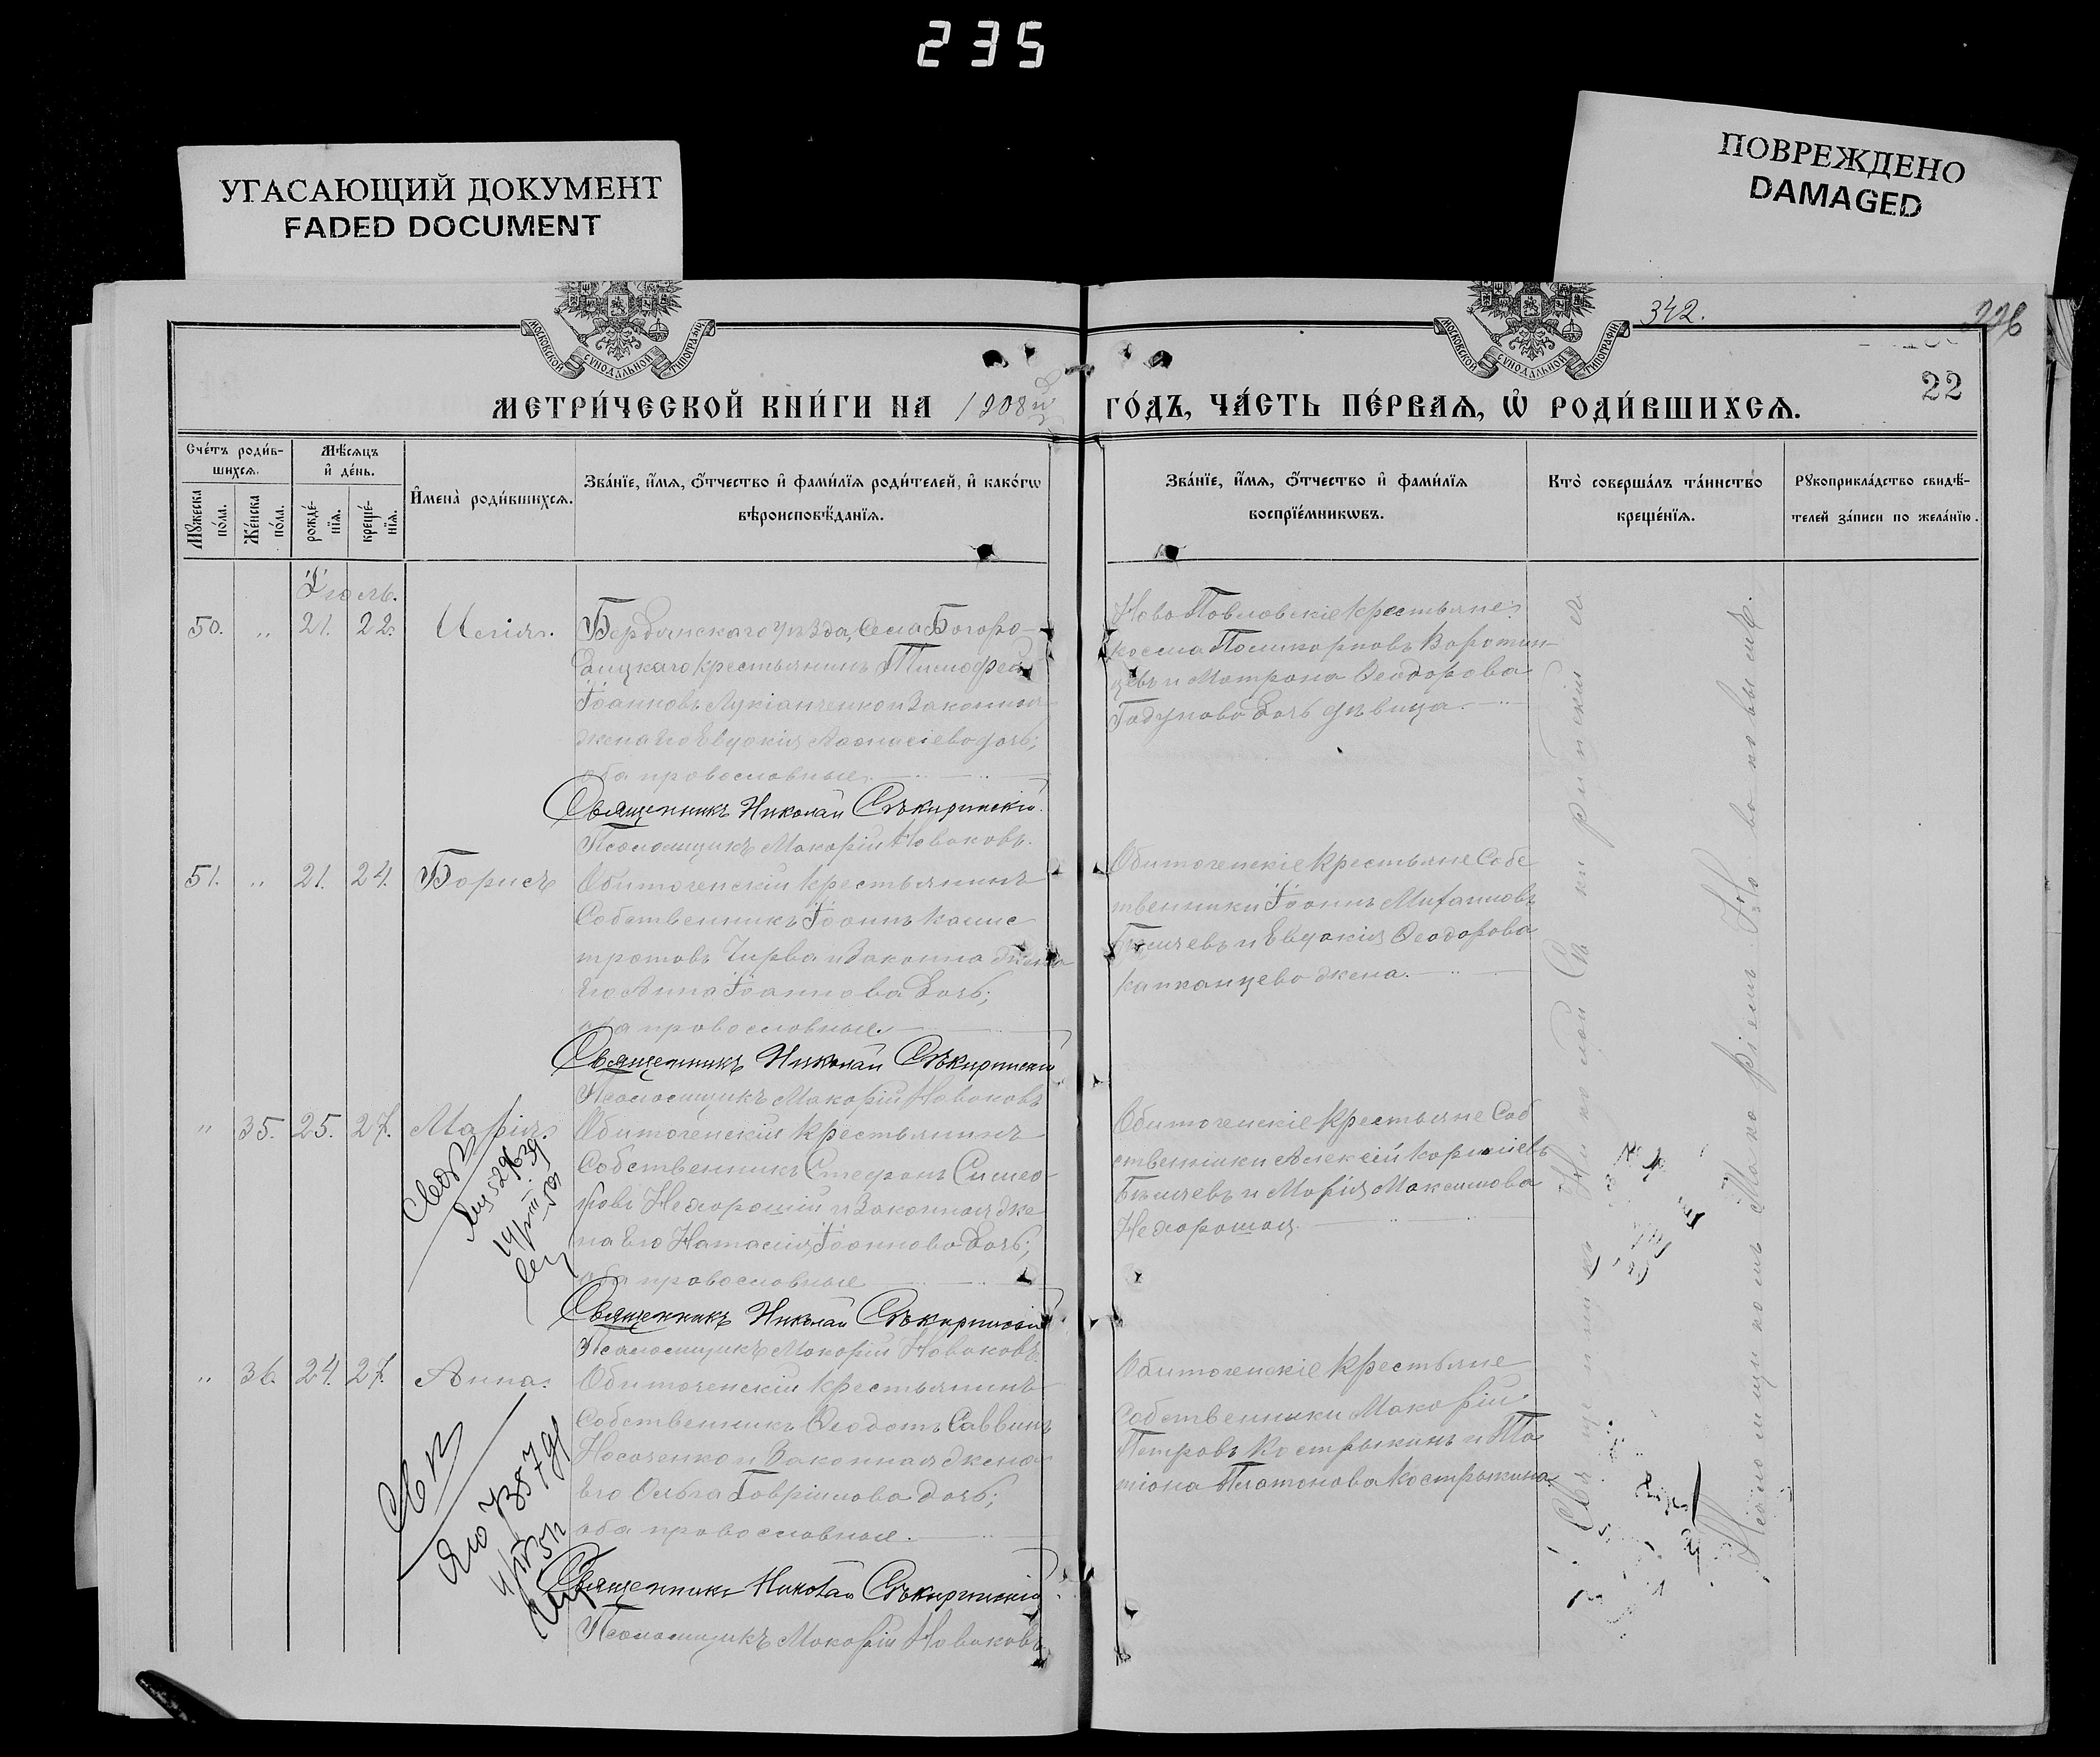 235
УГАСАЮЩИЙ ДОКУМЕНТ
FADED DOCUMENT
ПОВРЕЖДЕНО
DAMAGED
МОСКОВСКОЙ СУНОДАЛЬНОЙ ТИПОГРАФІИ
МОСКОВСКОЙ СУНОДАЛЬНОЙ ТИПОГРАФІИ
342.
226
22
МЕТРИ́ЧЕСКОЙ КНИ́ГИ НА 1908й
ГО́ДЪ, ЧА́СТЬ ПЕ́РВАѦ, Ѡ҆ РОДИ́ВШИХСѦ.
Сче́тъ роди́в-
шихсѧ.
Мꙋжеска по́ла.
Же́нска по́ла.
Мѣ́сѧцъ
и҆ де́нь.
рожде́-
нїѧ.
креще́-
нїѧ.
И҆мена̀ роди́вшихсѧ.
Зва́нїе, и҆́мѧ, ѻ҆́тчество и҆ фами́лїѧ роди́телей, и҆ како́гѡ
вѣроисповѣ́данїѧ.
Зва́нїе, и҆́мѧ, ѻ҆́тчество и҆ фами́лїѧ
воспрїе́мникѡвъ.
Кто̀ соверша́лъ та́инство
креще́нїѧ.
Рꙋкоприкла́дство свидѣ́-
телей за́писи по жела́нїю.
Іюль.
50. " 21. 22. Илія.
Бердянскаго уѣзда, Села Богоро-
дицкаго крестьянинъ Тимофей
Іоанновъ Лукіанченко и Законная
жена его Евдокія Аѳанасіева дочь;
оба православные.
Священникъ Николай Сѣкиринскій.
Псаломщикъ Макарій Новаковъ.
Ново Павловскіе крестьяне:
Косма Поликарповъ Воротын-
цевъ и Матрона Ѳеодорова
Годунова дочь дѣвица.
51. " 21. 24. Борисъ
Обиточенскій крестьянинъ
Собственникъ Іоаннъ Калис
тратовъ Чирва и Законна жена
его Анна Іоаннова дочь;
оба православные.
Священникъ Николай Сѣкиринскій
Псаломщикъ Макарій Новаковъ
Обиточенскіе крестьяне Собс
твенники Іоаннъ Михаиловъ
и Евдокія Ѳеодорова
Капканцева жена.
" 35. 25. 27. Марія.
Обиточенскій крестьянинъ
Собственникъ Стефанъ Симео-
новъ Нехорошій и Законная же
на Его Наталія Іоаннова дочь;
оба православные
Священникъ Николай Сѣкиринскій
Псаломщикъ Макарій Новаковъ.
Обиточенскіе крестьяне Соб
ственники Алексій Корниліевъ
и Марія Максимова
Нехорошая.
" 36. 24. 27. Анна.
Обиточенскій крестьянинъ
Собственникъ Ѳеодотъ Саввинъ
Носаченко и Законная жена
его Ольга Гавріилова дочь;
оба православные.
Священникъ Николай Сѣкиринскій
Псаломщикъ Макарій Новаковъ
Обиточенскіе крестьяне
Собственники Макарій
Петровъ Кострыкинъ и Та
тіана Платонова Кострыкина
Священникъ Николай Сѣкиринскій
Псаломщикъ Макарій Новаковъ.